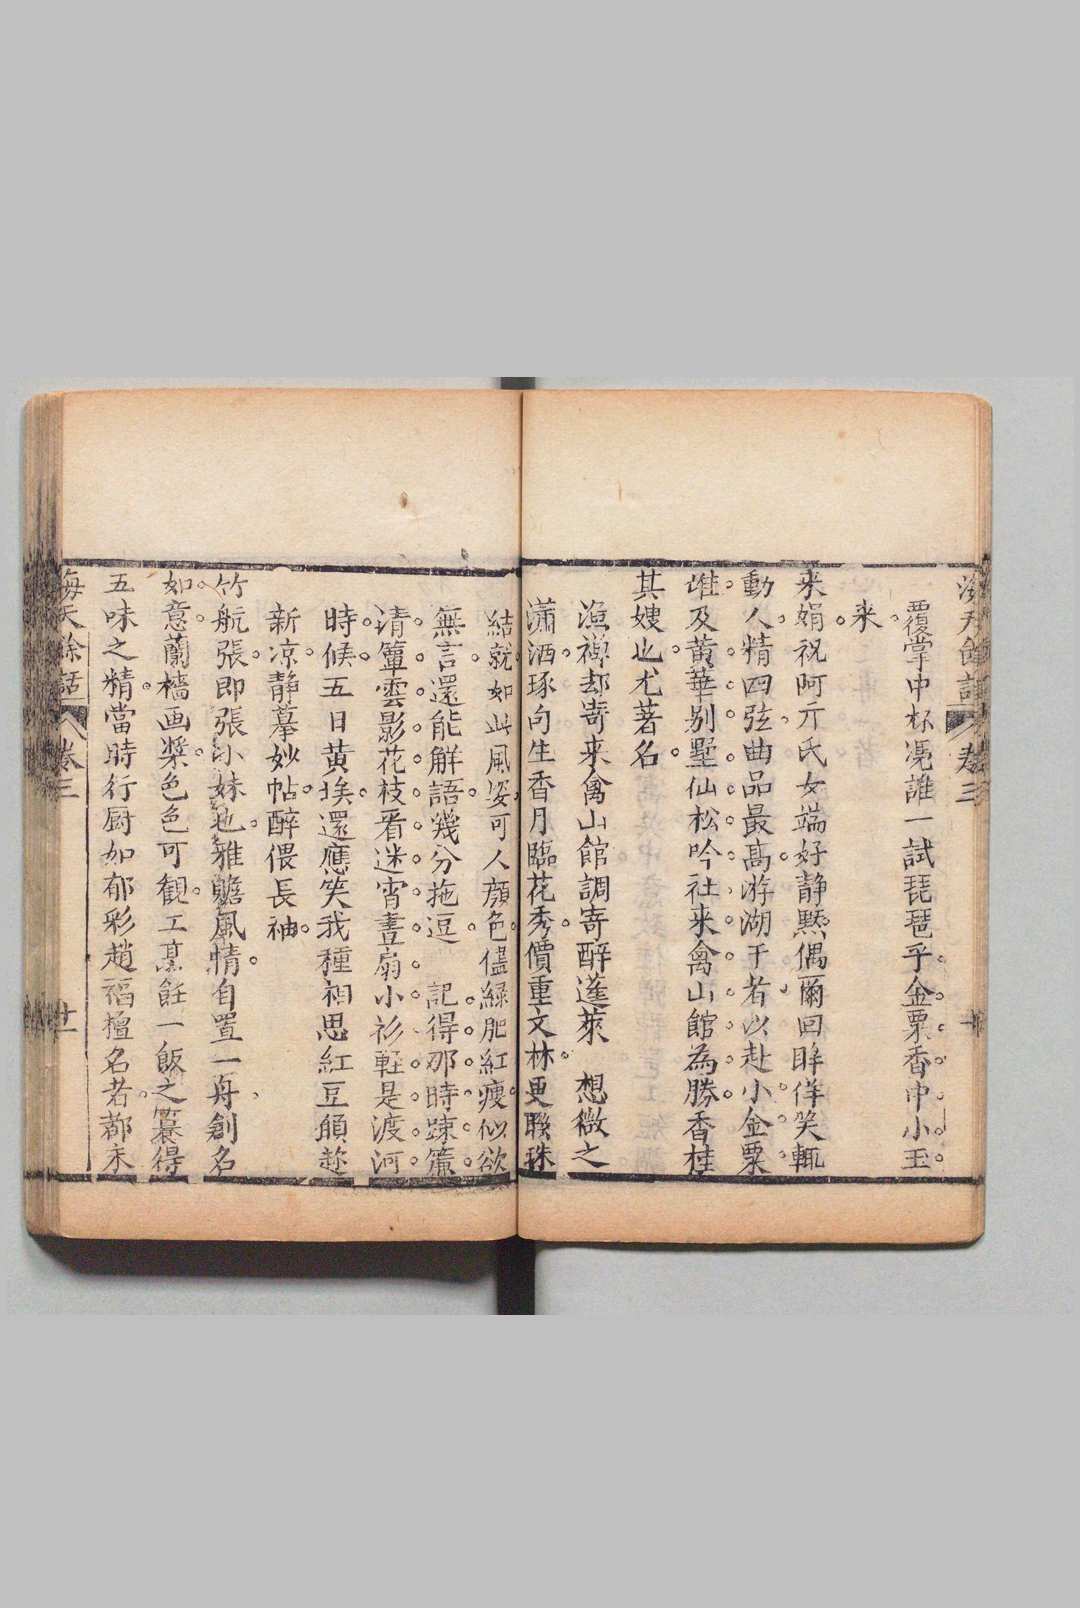 覆掌中杯凴誰一試琵琶乎金粟香中小玉
来
来娟祝阿亓氏女端好静黙偶爾回眸佯笑輙
動人精四弦曲品最高游湖于若以赴小金粟
及黄華别墅仙松吟社来禽山館為勝香桂
其嫂也尤著名
漁禪却寄来禽山館調寄醉蓬萊 想微之
瀟洒琢句生香月臨花秀價重文林更聯珠
結就如此風姿可人顔色儘緑肥紅痩似欲
無言還能解語㡬分拖逗 記得那時踈簾
清簟雲影花枝看迷宵晝扇小衫輕是渡河
時候五日黄埃還應笑我種相思紅豆頠趂
新凉静摹妙帖醉偎長袖
竹航張即張小妹也雅贍風情自置一舟創名
如意蘭檣画槳色色可観工烹飪一飯之饌得
五味之精當時行厨如郁彩趙福檀名者都未
海天餘話 卷三 廿一